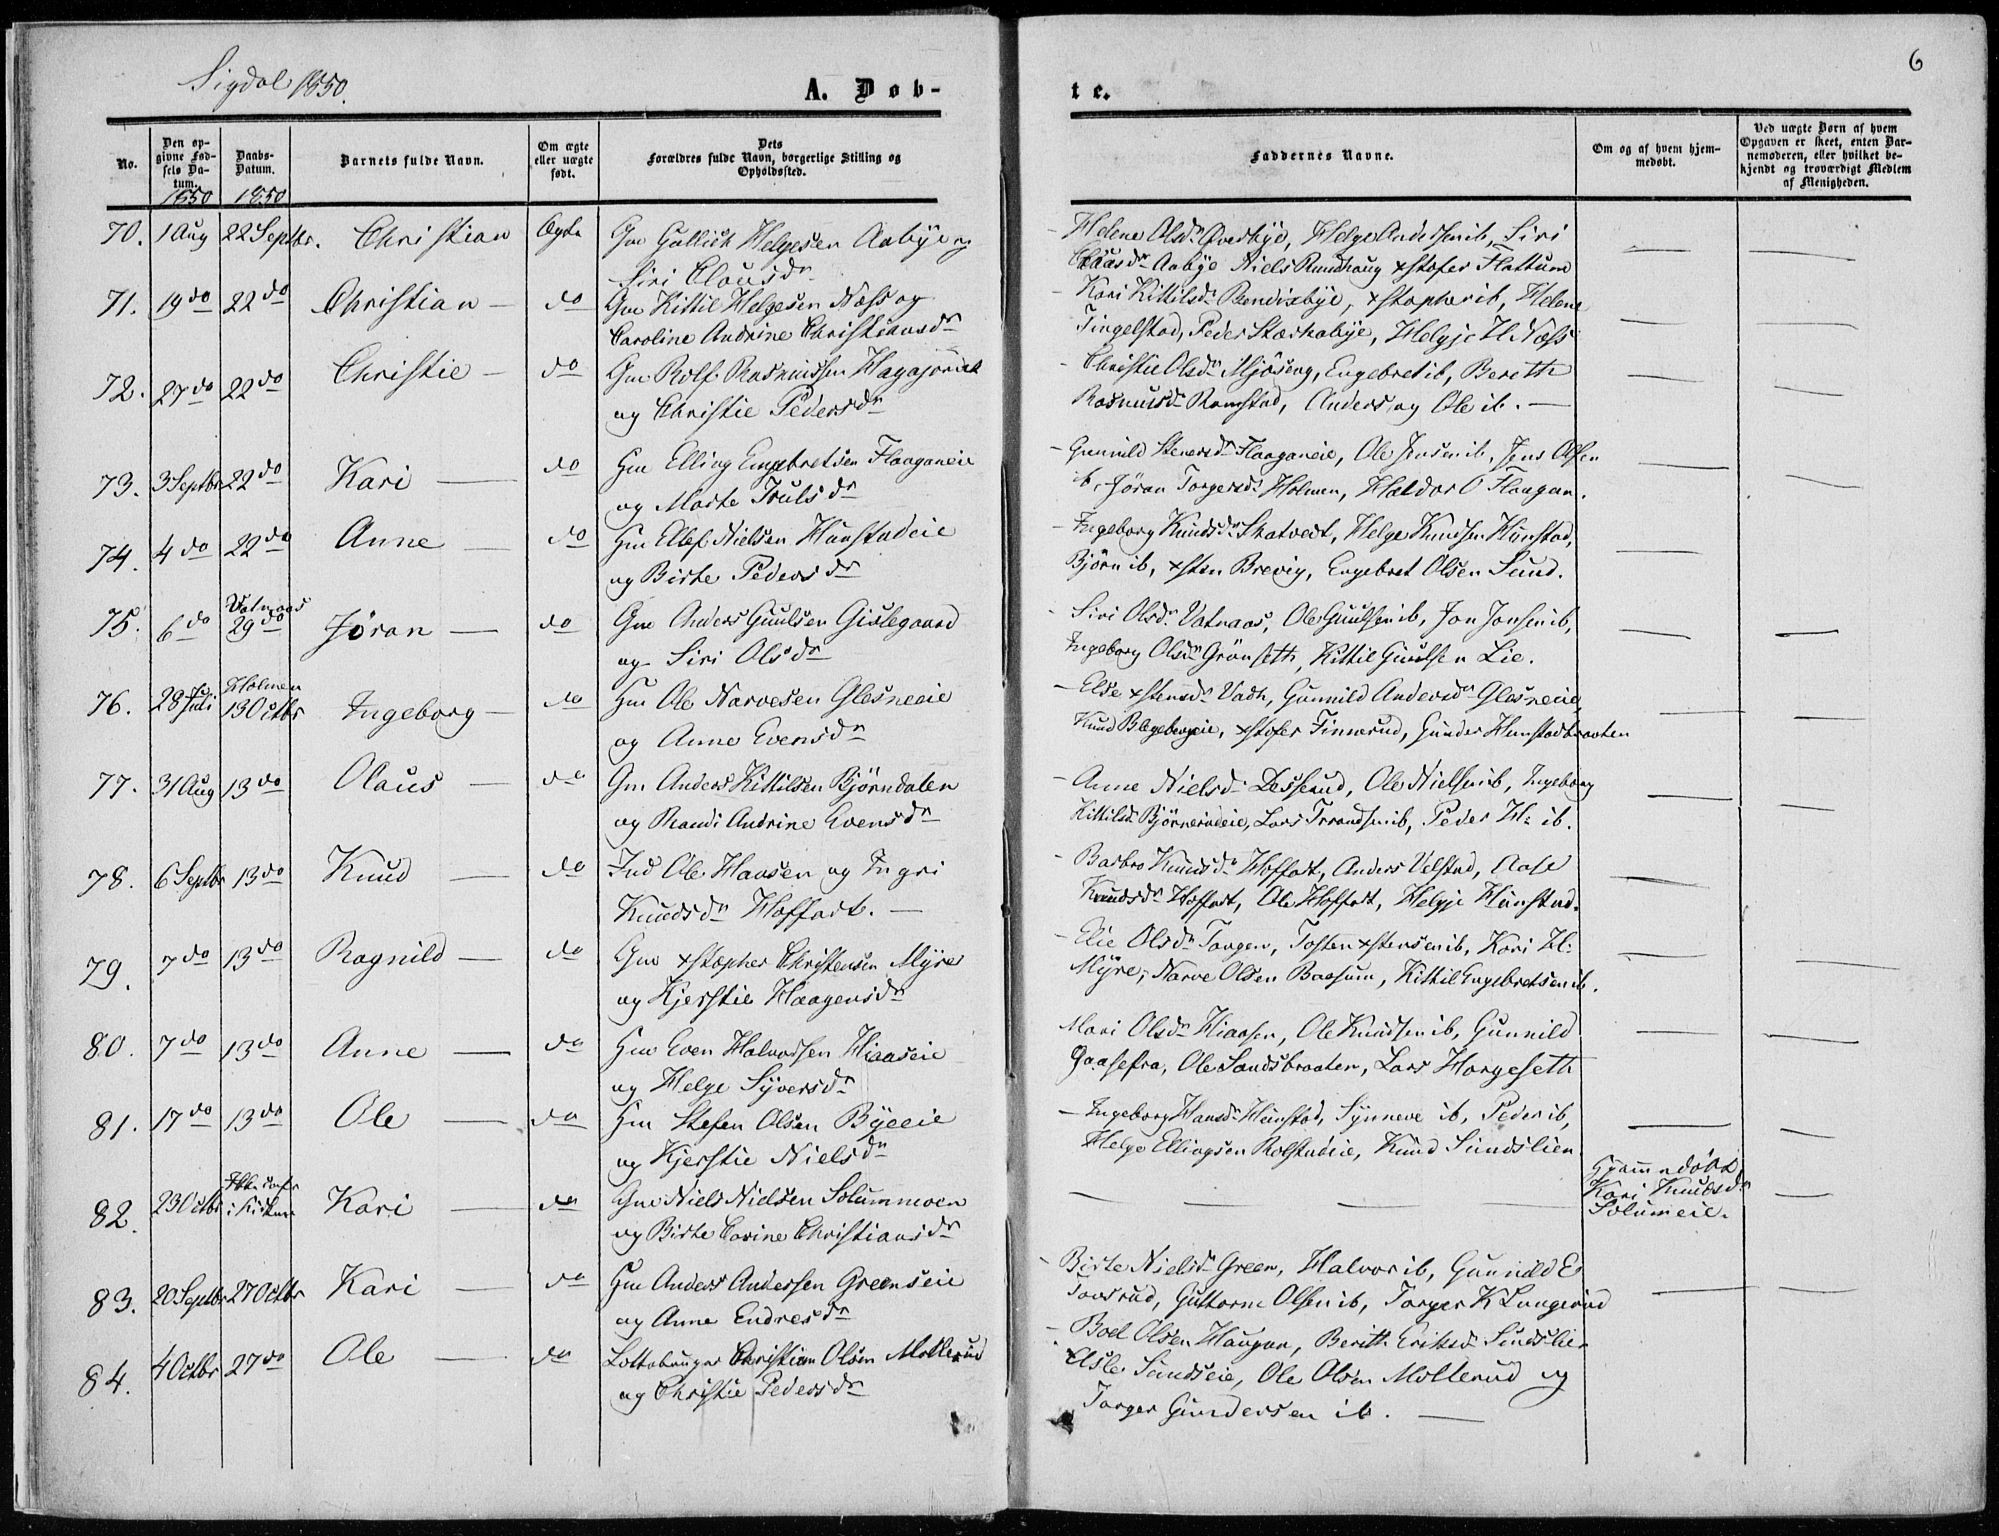 Sigdal 1850.
A. Døb-
te.
6
No.
Den op-
givne Fød-
sels Da-
tum.
1850
Daabs-
Datum.
1850
Barnets fulde Navn.
Om ægte
eller uægte
født.
Dets
Forældres fulde Navn, borgerlige Stilling og
Opholdssted.
Faddernes Navne.
Om og af hvem hjem-
medøbt.
Ved uægte Børn af hvem
Opgaven er skeet, enten Bar-
nemoderen, eller hvilket be-
kjendt og troværdigt Medlem
af Menigheden.
70. 1 Aug 22 Septbr. Christian Ægte Gm Gullich Helgesen Aabye og
Siri Clausdr
Helene Olsdr Overbye, Helge Andersen ib, Siri
Clausdr Aabye Niels Ruudhaug xstofer Flattum
71. 19 do 22 do Christian — do Gm Kittil Helgesen Næss og
Caroline Andrine Christiansdr
Kari Kittilsdr Bendixbye, xstopher ib, Helene
Tingelstad, Peder Stærkebye, Helgje H. Næss
72. 27 do 22 do Christie — do Gm Rolf Rasmussen
og Christie Pedersdr
Christie Olsdr Mjøseng, Engebret ib, Bereth
Rasmusdr Ramstad, Anders og Ole ib. —
73. 3 Septbr 22 do Kari — do Hm Elling Engebretsen Flaaganeie
og Marte Trulsdr
Gunnild Steversdr Flaaganeie, Ole Jensen ib, Jens Olsen
ib, Jøran Torgersdr Holmen, Haldor O Flaagan.
74. 4 do 22 do Anne — do Hm Ellef Nielsen Hunstadeie
og Birte Pedersdr
Ingeborg Knudsdr Skatvedt, Helge Knudsen Hunstad,
Bjørn ib, xsten Brevig, Engebret Olsen Sund.
75. 6 do Vatnaas 29 do Jøran — do Gm Anders Guulsen Gislegaard
og Siri Olsdr
Siri Olsdr Vatnaas, Ole Guulsen ib, Jon Jonsen ib,
Ingeborg Olsdr Grønseth, Kittil Guulsen Lie.
76. 28 Juli Holmen 13 Octbr Ingeborg — do Hm Ole Narvesen Glesneeie
og Anne Evensdr
Else xstensdr Vadh, Gunnild Andersdr Glesneeie,
Knud Blegebergeie, xstofer Finnerud, Gunder Hunstadbraaten
77. 31 Aug 13 do Olaus — do Gm Anders Kittilsen Bjørndalen
og Randi Andrine Evensdr
Anne Nielsdr Desserud, Ole Nielsen ib, Ingeborg
Kittilsdr Bjørnerudeie, Lars Trondsen ib, Peder H: ib.
78. 6 Septbr 13 do Knud — do Ind Ole Hansen og Ingri
Knudsdr Hoffart. —
Barbro Knudsdr Hoffart, Anders Velstad, Aase
Knudsdr Hoffart, Ole Hoffart, Helgje Hunstad.
79. 7 do 13 do Ragnild — do Gm xstopher Christensen Myre
og Kjerstie Haagensdr
Elie Olsdr Tangen, Tosten xstensen ib, Kari H:
Myre, Narve Olsen Baasum, Kittil Engebretsen ib.
80. 7 do 13 do Anne — do Hm Even Halvorsen Hiaaseie
og Helge Syversdr
Mari Olsdr Hiaasen, Ole Knudsen ib, Gunnild
Gaasefra, Ole Sandsbraaten, Lars Horgeseth
81. 17 do 13 do Ole — do Hm Stefen Olsen Byeeie
og Kjerstie Nielsdr
Ingeborg Hansdr Hunstad, Synneve ib, Peder ib,
Helge Ellingsen Rolstadeie, Knud Sundslien
82. 23 Octbr Ikke døbt i Kirken Kari — do Gm Niels Nielsen Solummoen
og Birte Carine Christiansdr
Hjemmedøbt
Kari Knudsdr
Solumeie.
83. 20 Septbr 27 Octbr Kari — do Hm Anders Andersen Greenseie
og Anne Endresdr
Birte Nielsdr Green, Halvor ib, Gunnild E
Tovsrud, Guttorm Olsen ib, Torger K Langerud
84. 4 Octbr 27 do Ole — do Lottebruger Christian Olsen Mollerud
og Christie Pedersdr
Boel Olsen Haugan, Berith Eriksdr Sundslien
Asle Sundseie, Ole Olsen Mollerud og
Torger Gundersen ib. —